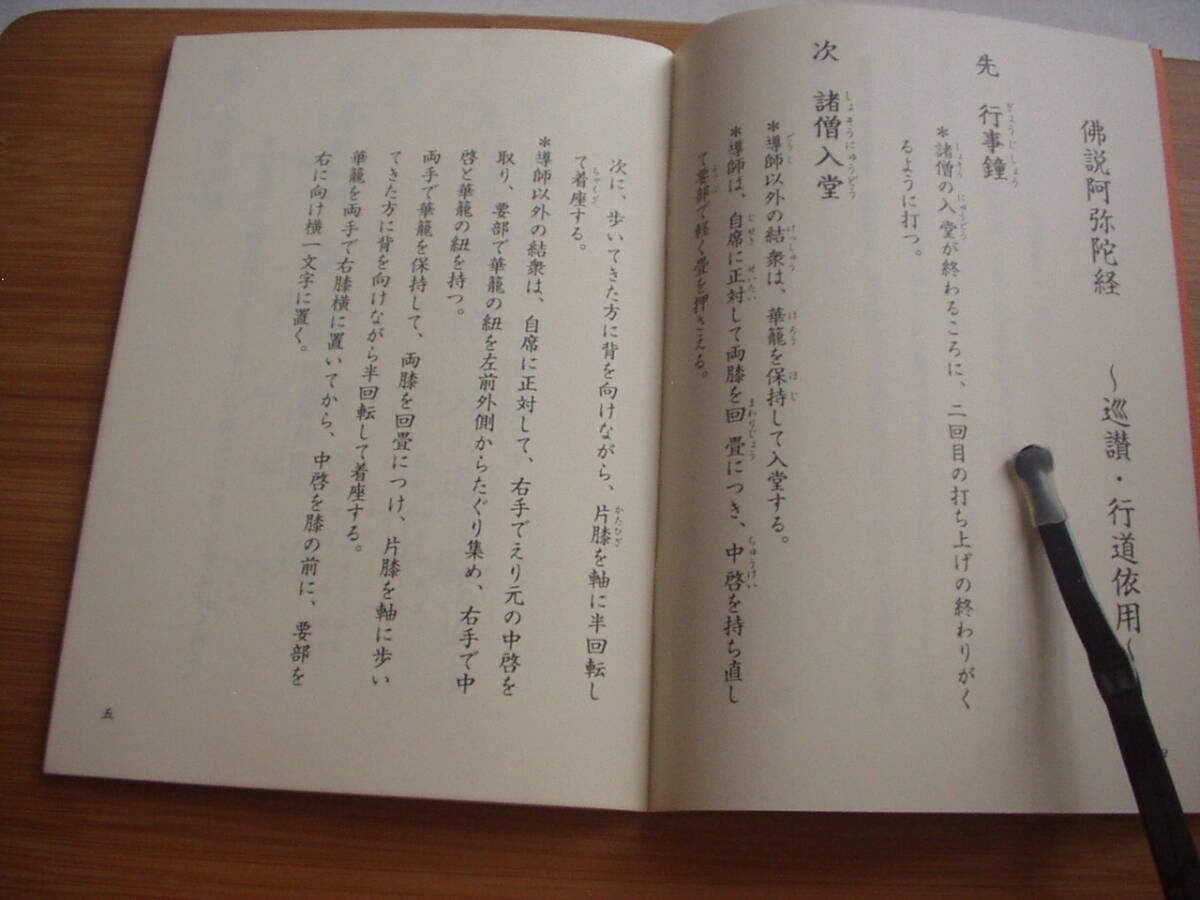 佛説阿弥陀経　〜巡讃・行道依用〜
先　行事鐘
＊諸僧の入堂が終わるころに、二回目の打ち上げの終わりがく
るように打つ。
次　諸僧入堂
＊導師以外の結衆は、華籠を保持して入堂する。
＊導師は、自席に正対して両膝を回畳につき、中啓を持ち直し
て要部で軽く畳を押さえる。
次に、歩いてきた方に背を向けながら、片膝を軸に半回転し
て着座する。
＊導師以外の結衆は、自席に正対して、右手でえり元の中啓を
取り、要部で華籠の紐を左前外側からたぐり集め、右手で中
啓と華籠の紐を持つ。
両手で華籠を保持して、両膝を回畳につけ、片膝を軸に歩い
てきた方に背を向けながら半回転して着座する。
華籠を両手で右膝横に置いてから、中啓を膝の前に、要部を
右に向け横一文字に置く。
五